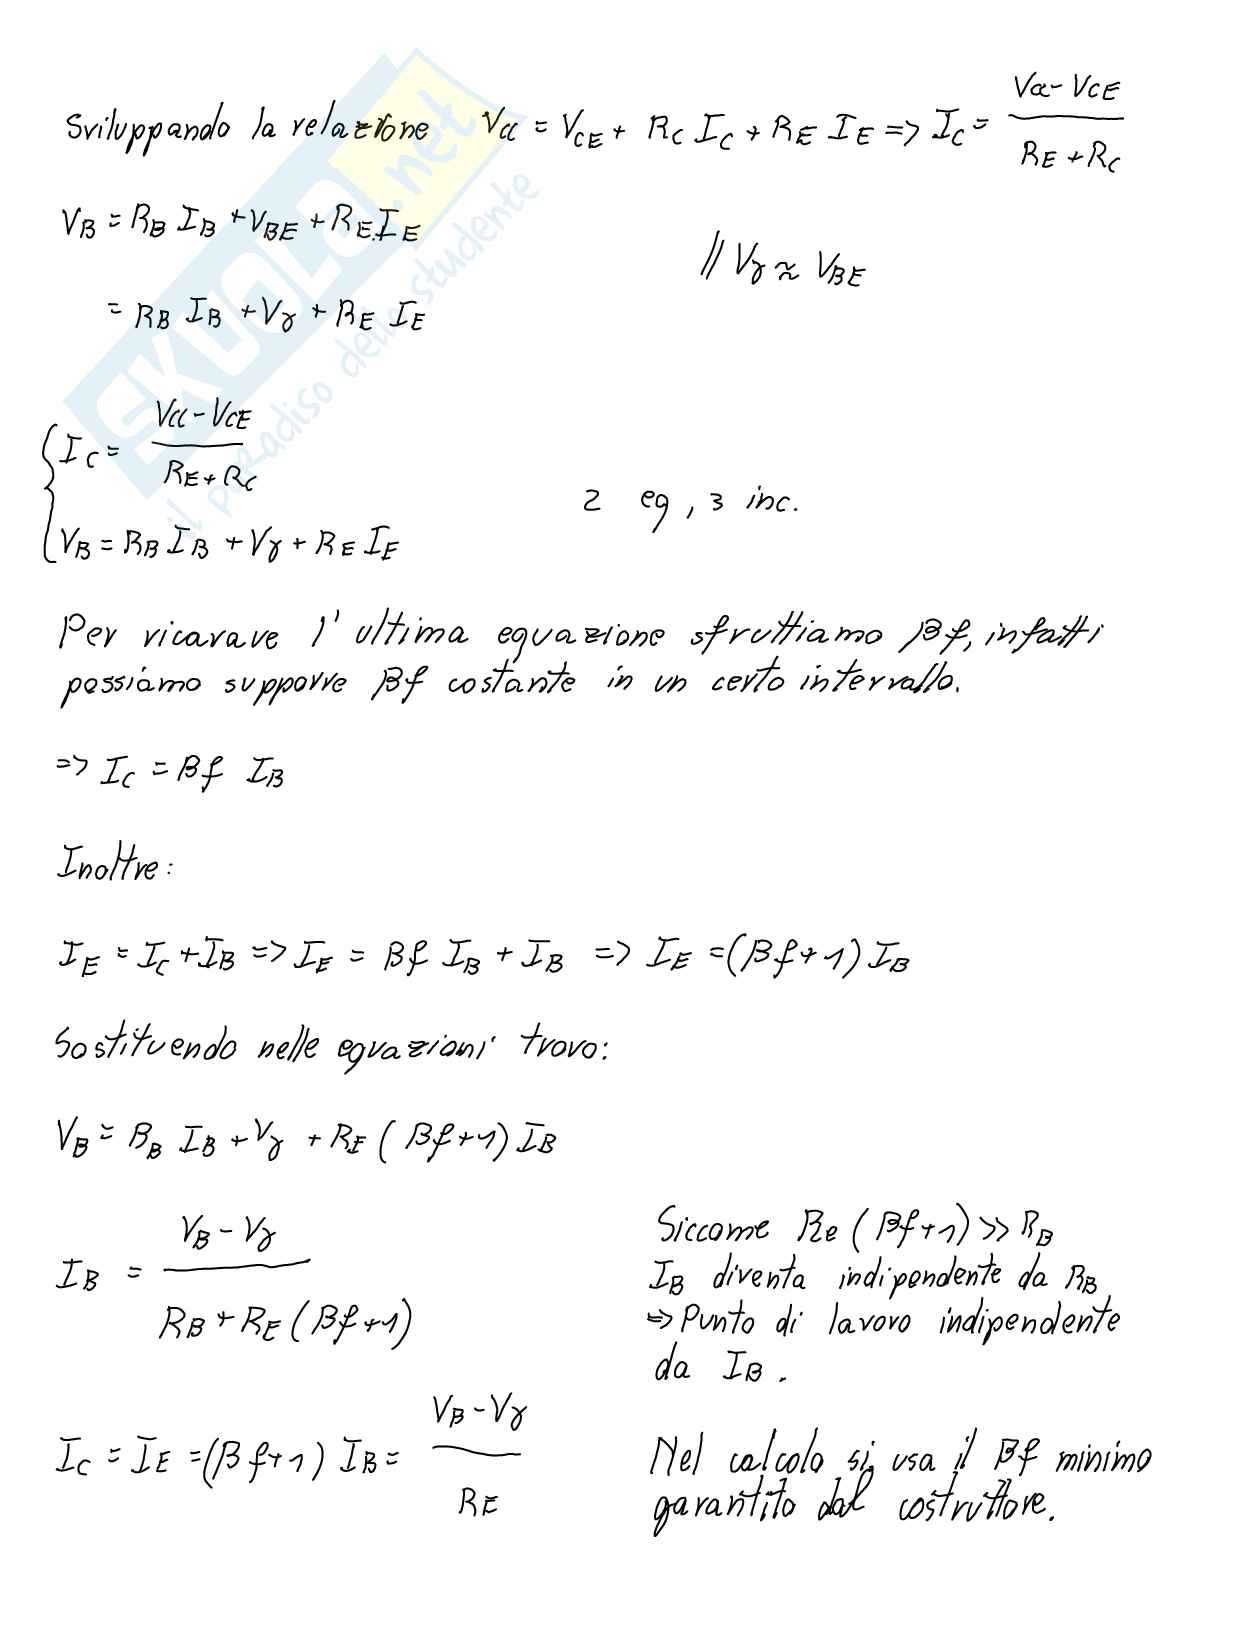 Sviluppando la relazione Vcc = VCE + RC IC + RE IE => IC = (Vcc - VCE) / (RE + RC)
VB = RB IB + VBE + RE IE
// Vγ ≈ VBE
= RB IB + Vγ + RE IE
{ IC = (Vcc - VCE) / (RE + RC)
2 eq, 3 inc.
VB = RB IB + Vγ + RE IE
Per ricavare l'ultima equazione sfruttiamo βf, infatti
possiamo supporre βf costante in un certo intervallo.
=> IC = βf IB
Inoltre:
IE = IC + IB => IE = βf IB + IB => IE = (βf+1) IB
Sostituendo nelle equazioni trovo:
VB = BB IB + Vγ + RE (βf+1) IB
IB = (VB - Vγ) / (RB + RE (βf+1))
Siccome Re (βf+1) >> RB
IB diventa indipendente da RB
=> Punto di lavoro indipendente
da IB.
IC = IE = (βf+1) IB = (VB - Vγ) / RE
Nel calcolo si usa il βf minimo
garantito dal costruttore.
SKUOLA.net
il paradiso dello studente